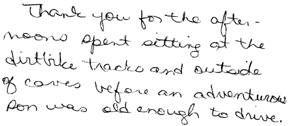 Thank you for the after-
noons spent sitting at the
dirtbike tracks and outside
of caves before an adventurous
son was old enough to drive.